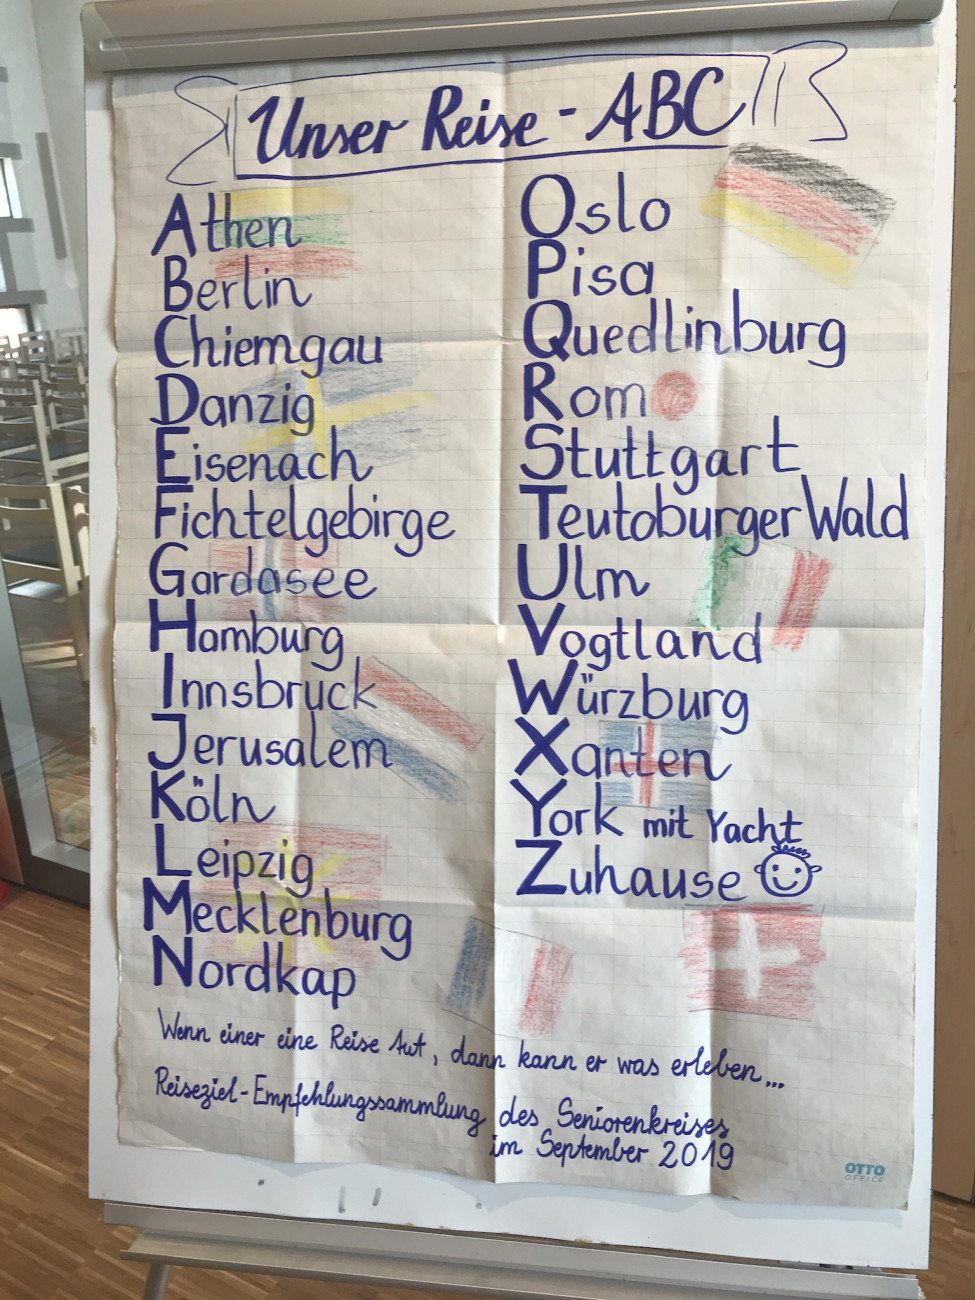 Unser Reise-ABC
Athen
Berlin
Chiemgau
Danzig
Eisenach
Fichtelgebirge
Gardasee
Hamburg
Innsbruck
Jerusalem
Köln
Leipzig
Mecklenburg
Nordkap
Oslo
Pisa
Quedlinburg
Rom
Stuttgart
Teutoburger Wald
Ulm
Vogtland
Würzburg
Xanten
York mit Yacht
Zuhause
Wenn einer eine Reise tut, dann kann er was erleben...
Reiseziel-Empfehlungssammlung des Seniorenkreises
im September 2019
OTTO
OFFICE